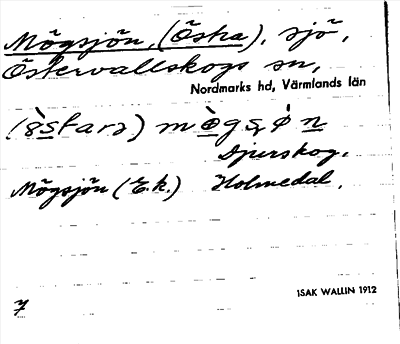 Mögsjön, (Östra), sjö,
Östervallskogs sn,
Nordmarks hd, Värmlands län
Djurskog.
Mögsjön (E.k.) Holmedal.
ISAK WALLIN 1912
7